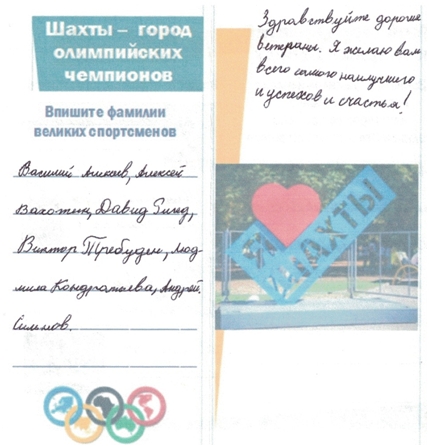 Шахты – город
олимпийских
чемпионов
Впишите фамилии
великих спортсменов
Василий Алексеев, Алексей
Вахонин, Давид Ригерт,
Виктор Третубден, Люд-
мила Кондратьева, Андрей
Симмов.
Здравствуйте дорогие
ветераны. Я желаю вам
всего самого наилучшего
и успехов и счастья!
Я ШАХТЫ